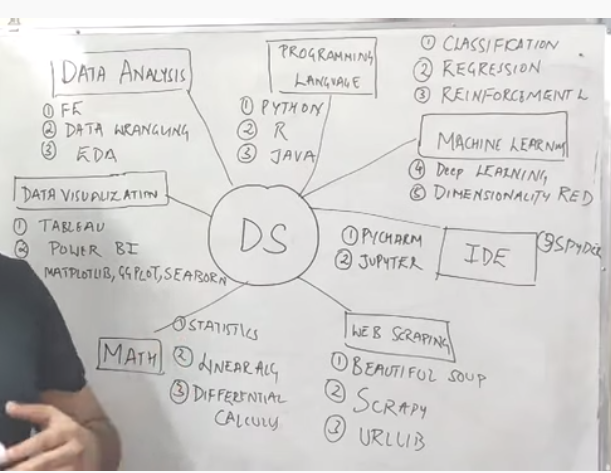 DATA ANALYSIS
① FE
② DATA WRANGLING
③ EDA
PROGRAMMING
LANGUAGE
① PYTHON
② R
③ JAVA
① CLASSIFICATION
② REGRESSION
③ REINFORCEMENT L
MACHINE LEARNING
④ Deep LEARNING
⑤ DIMENSIONALITY RED
DATA VISUALIZATION
① TABLEAU
② POWER BI
MATPLOTLIB, GGPLOT, SEABORN
DS
① PYCHARM
② JUPYTER
IDE
③ SPYDER
MATH
① STATISTICS
② LINEAR ALG
③ DIFFERENTIAL
CALCULY
WEB SCRAPING
① BEAUTIFUL SOUP
② SCRAPY
③ URLLIB